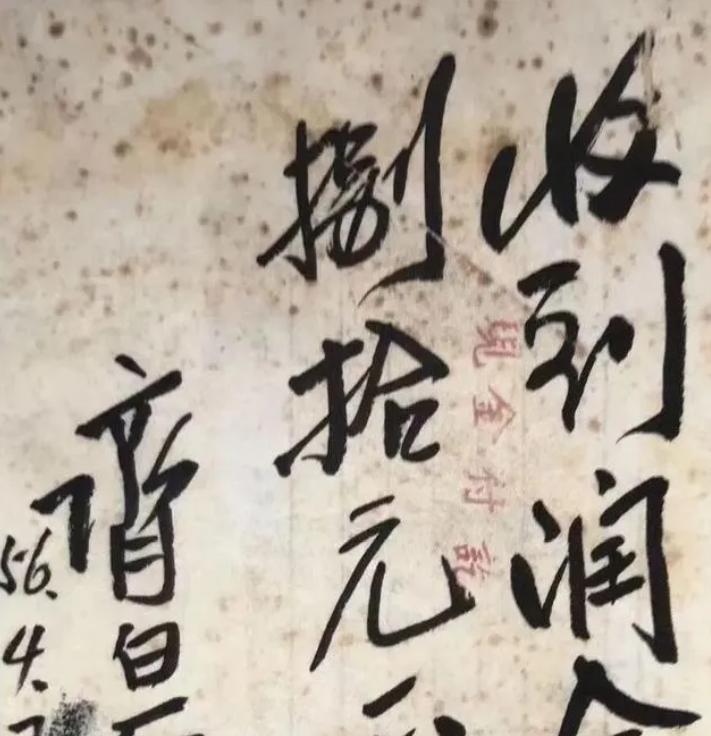 收到润金
现金付讫
捌拾元
齊白
56.
4.